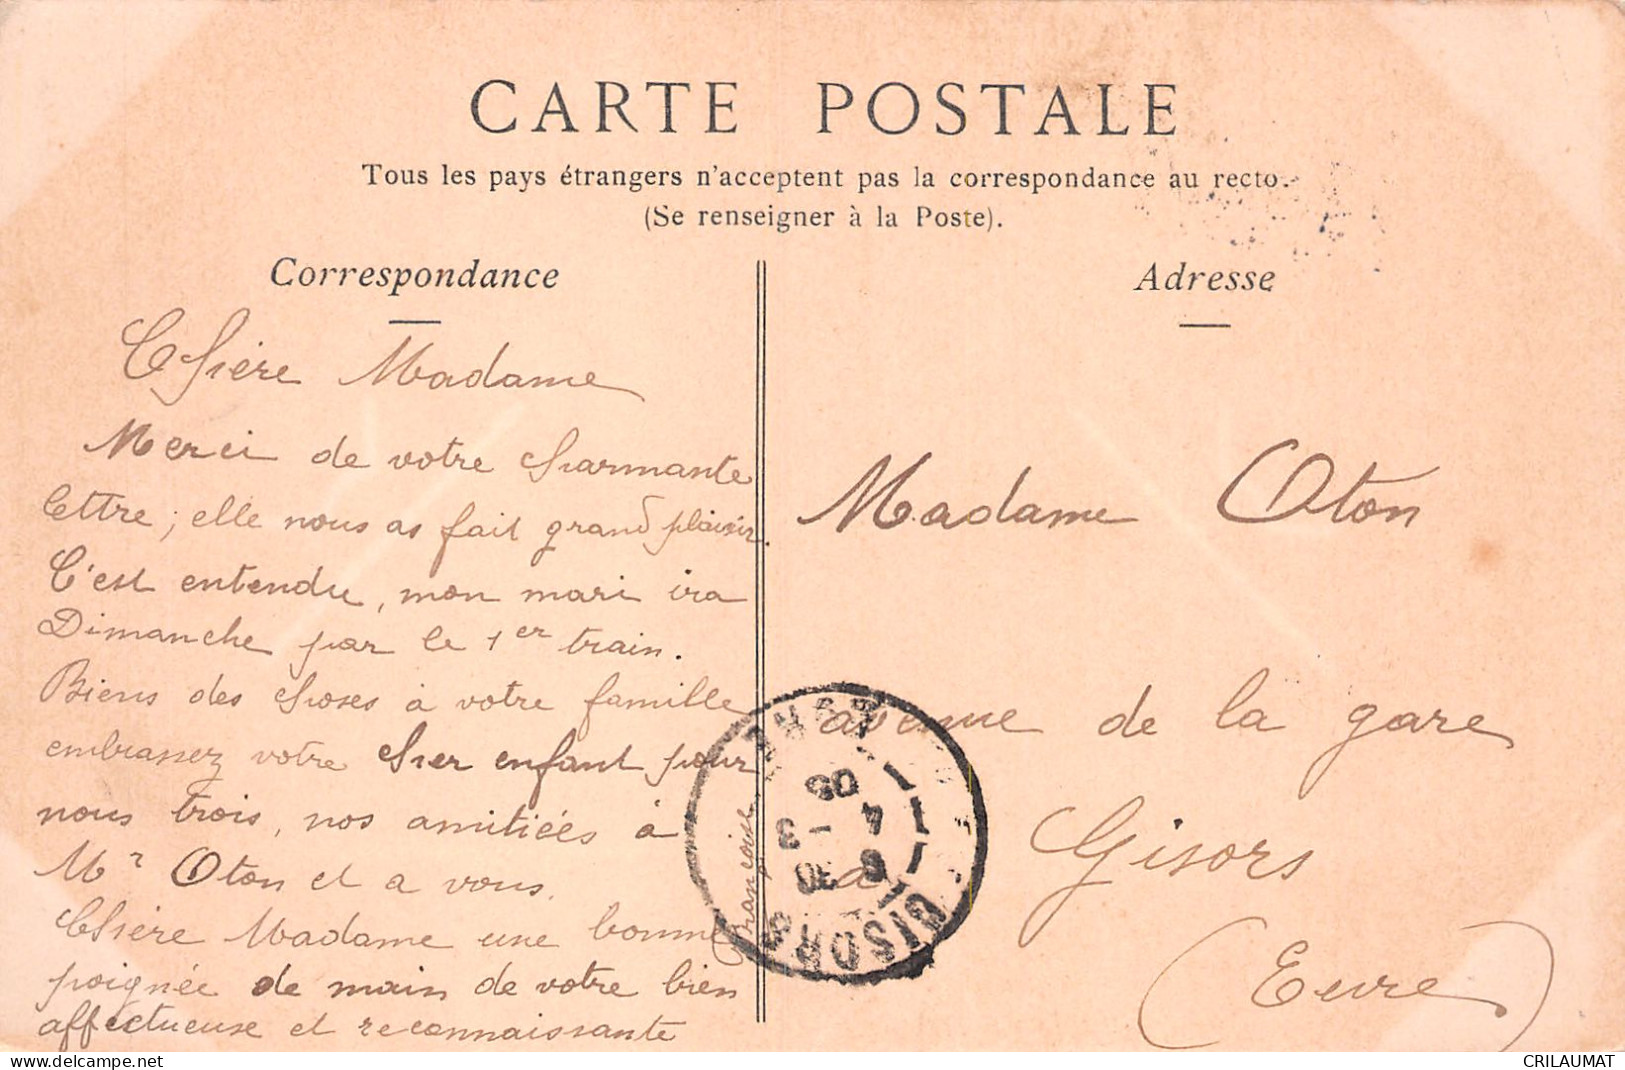 CARTE POSTALE
Tous les pays étrangers n'acceptent pas la correspondance au recto.
(Se renseigner à la Poste).
Correspondance
Chère Madame
Merci de votre charmante
lettre; elle nous as fait grand plaisir.
C'est entendu, mon mari ira
Dimanche par le 1er train.
Biens des choses à votre famille
embrassez votre cher enfant pour
nous trois, nos amitiées à
Mr Oton et a vous.
Chère Madame une bonne
poignée de main de votre bien
affectueuse et reconnaissante
Françoise.
Adresse
Madame Oton
avenue de la gare
à
Gisors
(Eure)
GISORS
EURE
6 30
4 - 3
05
delcampe.net
CRILAUMAT